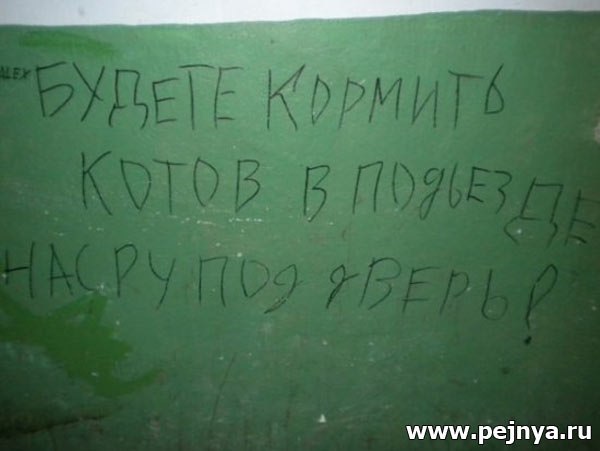 ALEX
БУДЕТЕ КОРМИТЬ
КОТОВ В ПОДЬЕЗДЕ
НАСРУ ПОД ДВЕРЬ!
www.pejnya.ru